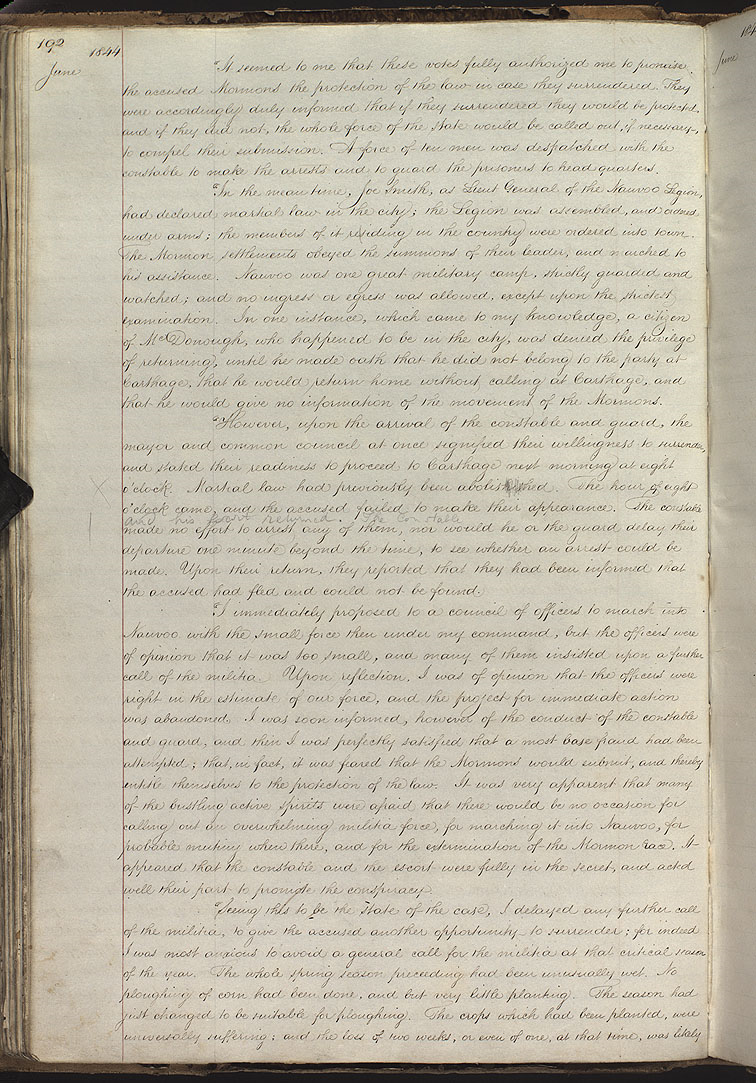 192 1844
June
"It seemed to me that these votes fully authorized me to promise
the accused Mormons the protection of the law in case they surrendered. They
were accordingly duly informed that if they surrendered they would be protected,
and if they did not, the whole force of the State would be called out, if necessary,
to compel their submission. A force of ten men was despatched with the
constable to make the arrests and to guard the prisoners to head quarters.
"In the mean time, Joe Smith, as Lieut General of the Nauvoo Legion,
had declared martial law in the city; the Legion was assembled, and ordered
under arms; the members of it residing in the country were ordered into town.
The Mormon settlements obeyed the summons of their leader, and marched to
his assistance. Nauvoo was one great military camp, strictly guarded and
watched; and no ingress or egress was allowed, except upon the strictest
examination. In one instance, which came to my knowledge, a citizen
of McDonough, who happened to be in the city, was denied the privilege
of returning, until he made oath that he did not belong to the party at
Carthage, that he would return home without calling at Carthage, and
that he would give no information of the movement of the Mormons.
"However, upon the arrival of the constable and guard, the
mayor and common council at once signified their willingness to surrender,
and stated their readiness to proceed to Carthage next morning at eight
o'clock. Martial law had previously been abolished. The hour of eight
o'clock came, and the accused failed to make their appearance. The constable
and his escort returned. The Constable
made no effort to arrest any of them, nor would he or the guard delay their
departure one minute beyond the time, to see whether an arrest could be
made. Upon their return, they reported that they had been informed that
the accused had fled and could not be found.
"I immediately proposed to a council of officers to march into
Nauvoo with the small force then under my command, but the officers were
of opinion that it was too small, and many of them insisted upon a further
call of the militia. Upon reflection, I was of opinion that the officers were
right in the estimate of our force, and the project for immediate action
was abandoned. I was soon informed, however of the conduct of the constable
and guard, and then I was perfectly satisfied that a most base fraud had been
attempted; that, in fact, it was feared that the Mormons would submit, and thereby
entitle themselves to the protection of the law. It was very apparent that many
of the bustling active spirits were afraid that there would be no occasion for
calling out an overwhelming militia force, for marching it into Nauvoo, for
probable mutiny when there, and for the extermination of the Mormon race. It
appeared that the constable and the escort were fully in the secret, and acted
well their part to promote the conspiracy.
"Seeing this to be the State of the case, I delayed any further call
of the militia, to give the accused another opportunity to surrender; for indeed
I was most anxious to avoid a general call for the militia at that critical season
of the year. The whole spring season preceeding had been unusually wet. No
ploughing of corn had been done, and but very little planting. The season had
just changed to be suitable for ploughing. The crops which had been planted, were
universally suffering; and the loss of two weeks, or even of one, at that time, was likely
June